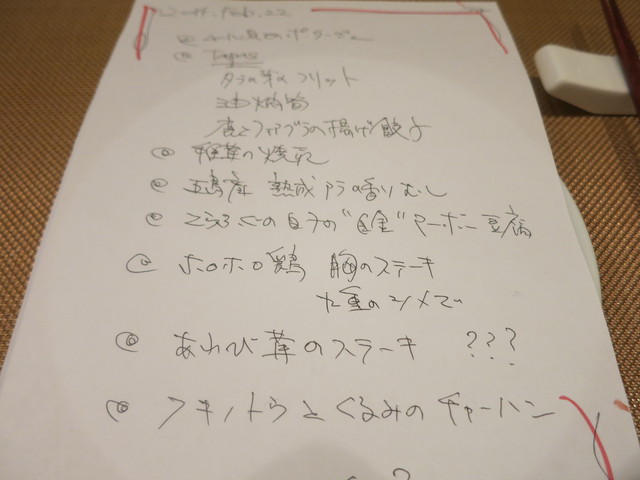 Feb. 22
のポタージュ
Tapas
タラの芽 フリット
油焼売
鹿とファアグラの揚げ餃子
椎茸の焼売
五島産 熟成アラ香りむし
とらふぐの白子の"白金"マーボー豆腐
ホロホロ鶏 胸のステーキ
九重のシメで
あわび茸のステーキ ???
フキノトウとくるみのチャーハン